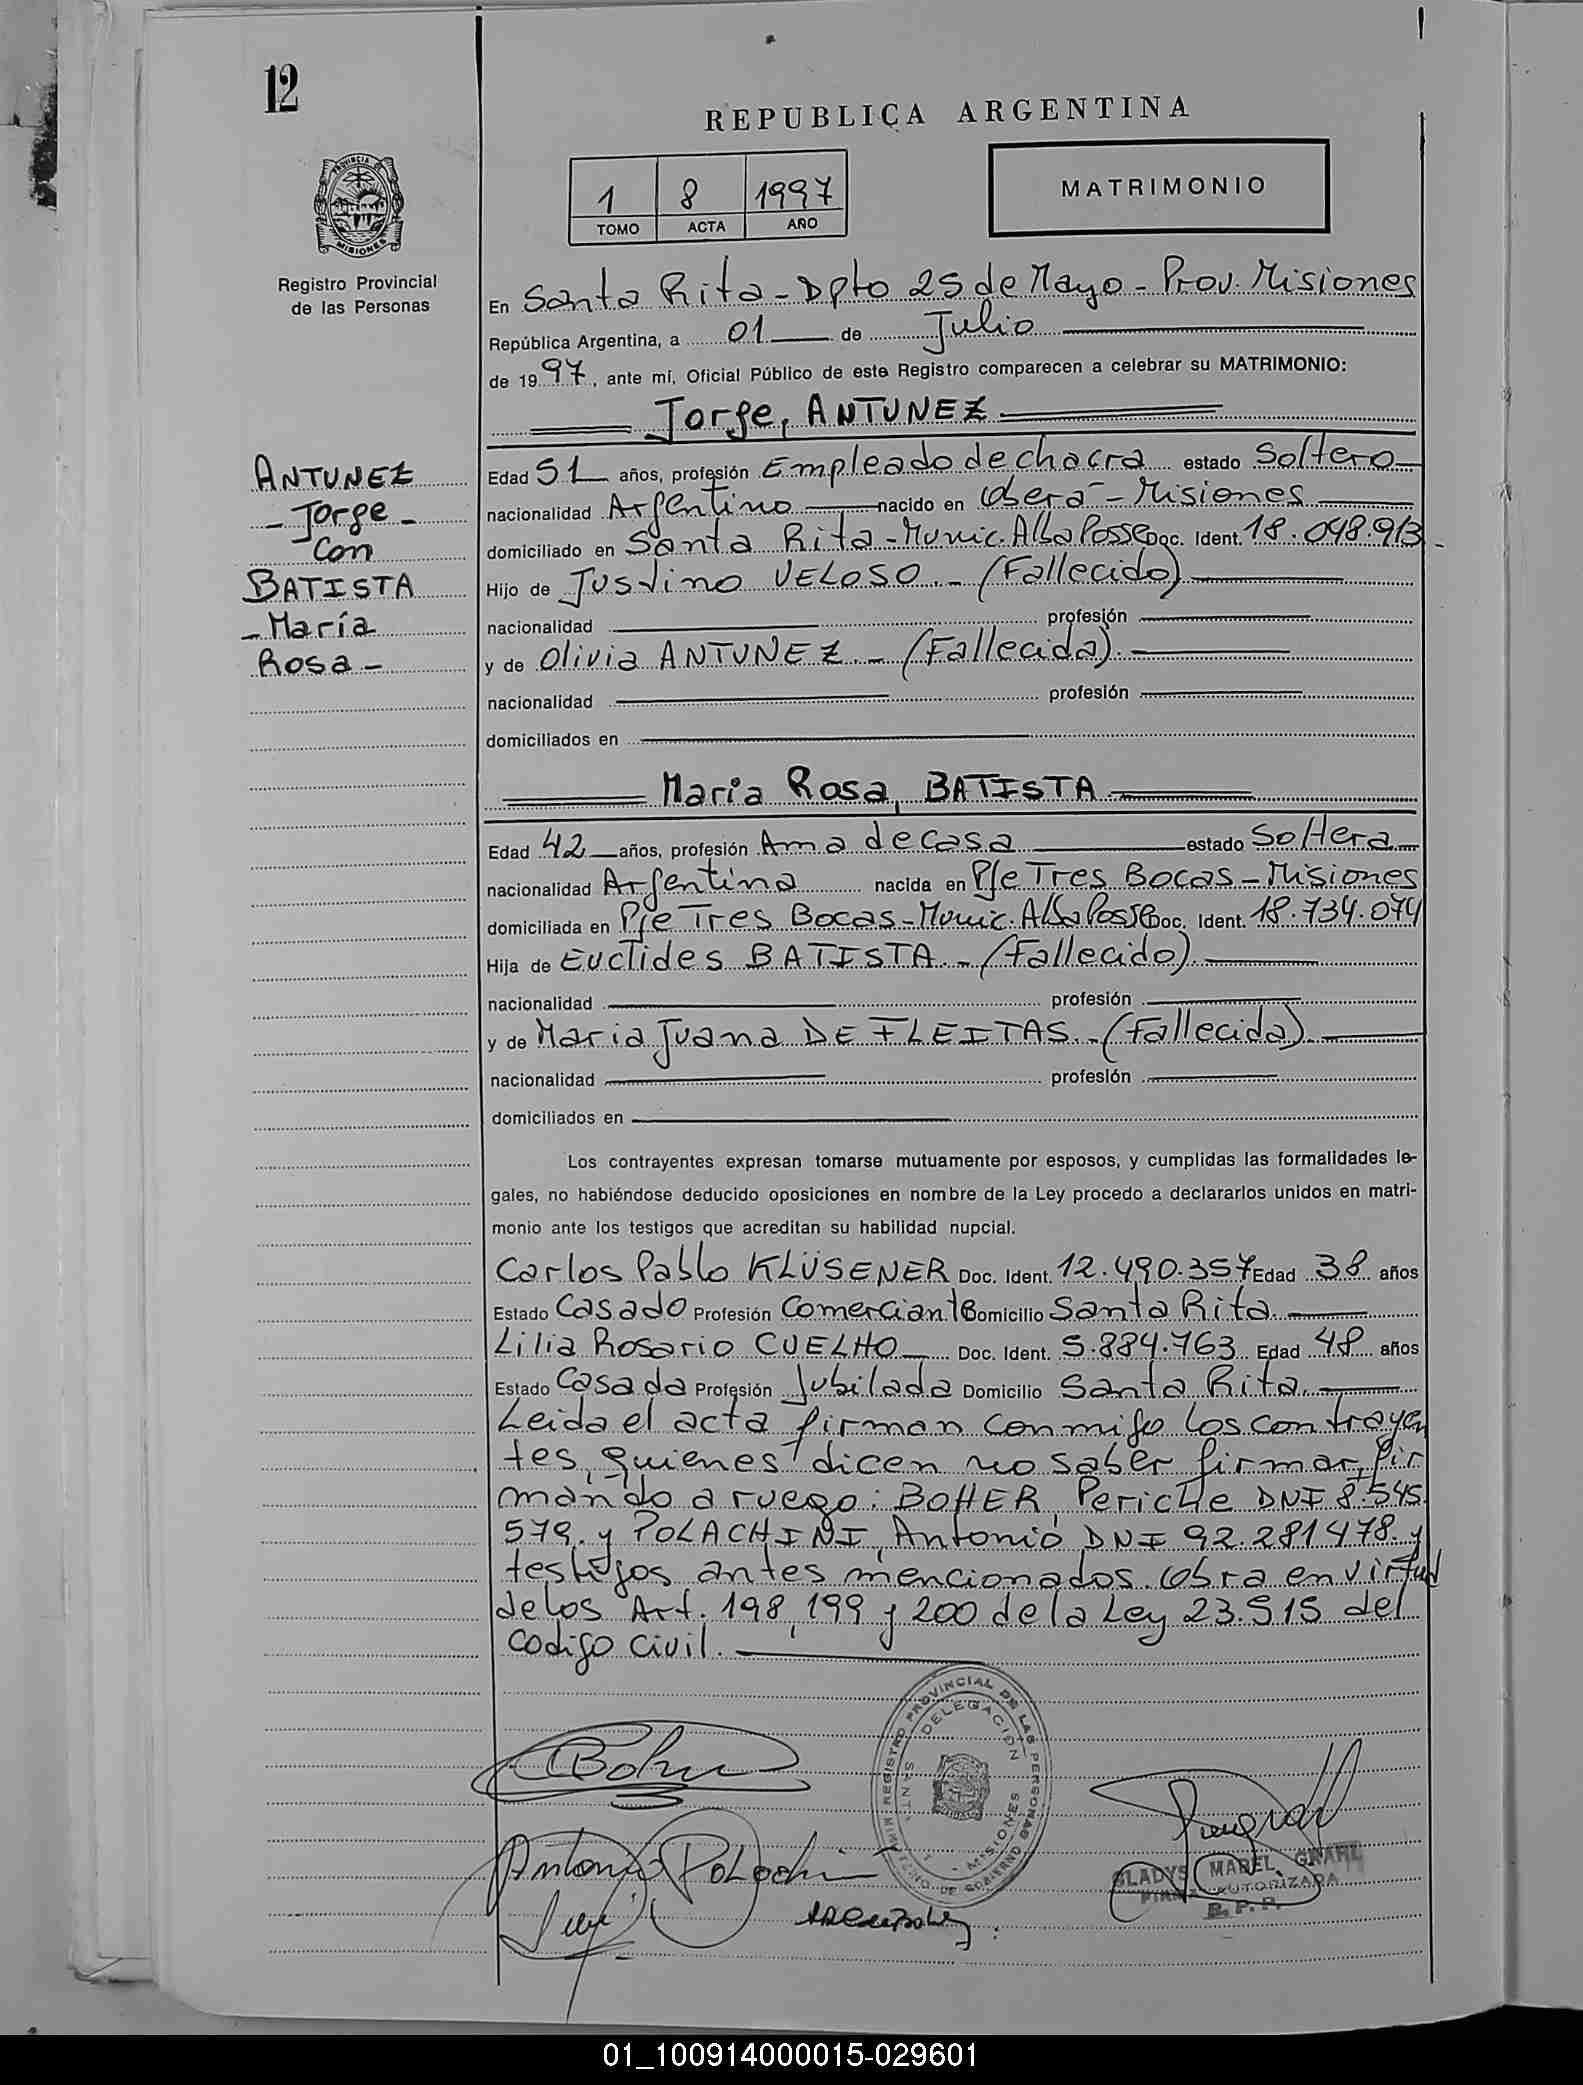 12
REPUBLICA ARGENTINA
PROVINCIA DE
MISIONES
Registro Provincial
de las Personas
1 8 1997
TOMO ACTA AÑO
MATRIMONIO
En Santa Rita - Dpto 25 de Mayo - Prov. Misiones
República Argentina, a 01 de Julio
de 1997, ante mí, Oficial Público de este Registro comparecen a celebrar su MATRIMONIO:
Jorge, ANTUNEZ
ANTUNEZ
- Jorge -
Con
BATISTA
- María
Rosa -
Edad 51 años, profesión Empleado de chacra estado Soltero
nacionalidad Argentino nacido en Oberá - Misiones
domiciliado en Santa Rita - Munic. Alba Posse Doc. Ident. 18.048.913 -
Hijo de Justino VELOSO. - (Fallecido)
nacionalidad profesión
y de Olivia ANTUNEZ. - (Fallecida).
nacionalidad profesión
domiciliados en
Maria Rosa, BATISTA
Edad 42 años, profesión Ama de casa estado Soltera
nacionalidad Argentina nacida en Pje Tres Bocas - Misiones
domiciliada en Pje Tres Bocas - Munic. Alba Posse Doc. Ident. 18.734.074
Hija de Euclides BATISTA. - (Fallecido).
nacionalidad profesión
y de Maria Juana DE FLEITAS. - (Fallecida).
nacionalidad profesión
domiciliados en
Los contrayentes expresan tomarse mutuamente por esposos, y cumplidas las formalidades le-
gales, no habiéndose deducido oposiciones en nombre de la Ley procedo a declararlos unidos en matri-
monio ante los testigos que acreditan su habilidad nupcial.
Carlos Pablo KLÜSENER Doc. Ident. 12.490.357 Edad 38 años
Estado Casado Profesión Comerciante Domicilio Santa Rita.
Lilia Rosario CUELHO Doc. Ident. 5.884.763 Edad 48 años
Estado Casada Profesión Jubilada Domicilio Santa Rita.
Leida el acta firman conmigo los contrayen
tes, quienes dicen no saber firmar, fir
mando a ruego: BOHER, Periche DNI 8.545.
579. y POLACHINI, Antonio DNI 92.281478. y
testigos antes mencionados. Obra en virtud
de los Art. 198, 199 y 200 de la Ley 23.515 del
Codigo Civil.
REGISTRO PROVINCIAL DE LAS PERSONAS
DELEGACION
MISIONES
Antonio Polachini
GLADYS MABEL
FIRMA AUTORIZADA
R. P. P.
01_100914000015-029601